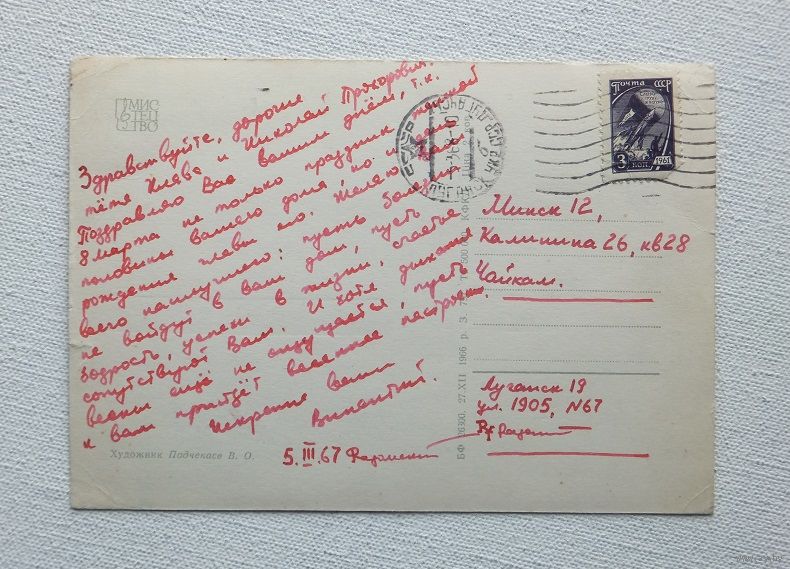 МИС
ТЕЦ
ТВО
Здравствуйте, дорогие
тётя Клава и Николай Прохорович.
Поздравляю Вас вашим днём, т.к.
8 марта не только праздник женской
половины вашего дома но и день
рождения главы его. Желаю вам
всего наилучшего: пусть болезни
не войдут в ваш дом, пусть
бодрость, успехи в жизни, счастье
сопутствуют Вам. И хотя дыхания
весны ещё не ощущается, пусть
к вам придёт весеннее настроение.
Искренне ваши
5.III.67
Художник Подчекаев В. О.
БФ 26300. 27.XII 1966 р. З.
ПОЧТА СССР
3 КОП.
1961
Минск 12,
Калинина 26, кв 28
Чайкам.
Луганск 19
ул. 1905, N67